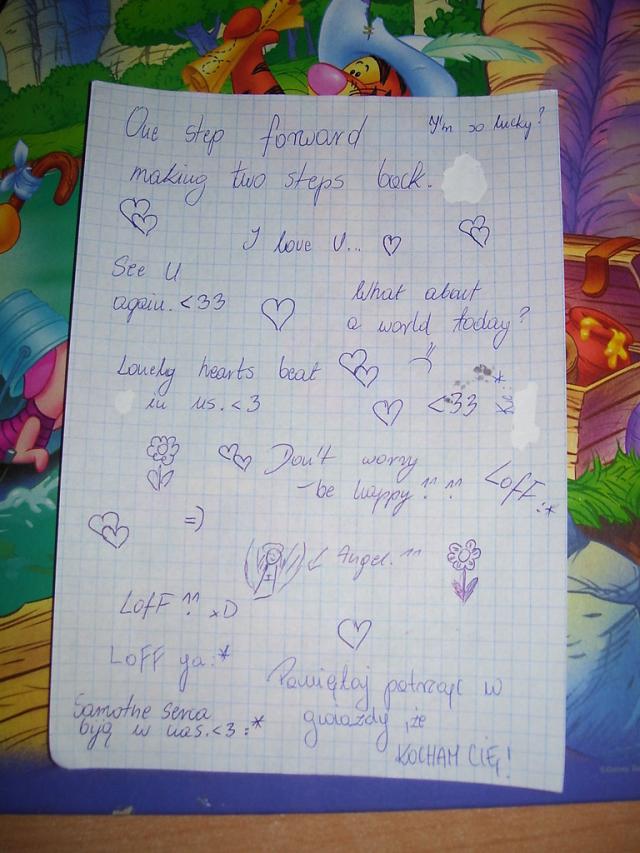 One step forward
I'm so lucky?
making two steps back.
I love U...
See U
again. <33
What about
a world today?
Lonely hearts beat
in us. <3
<33
Don't worry
-be happy ^^ ^^
Loff :*
=)
Angel. ^^
Loff ^^ xD
Loff ya :*
Pamiętaj patrząc w
gwiazdy, że
KOCHAM CIĘ!
Samotne serca
byją w nas. <3 :*